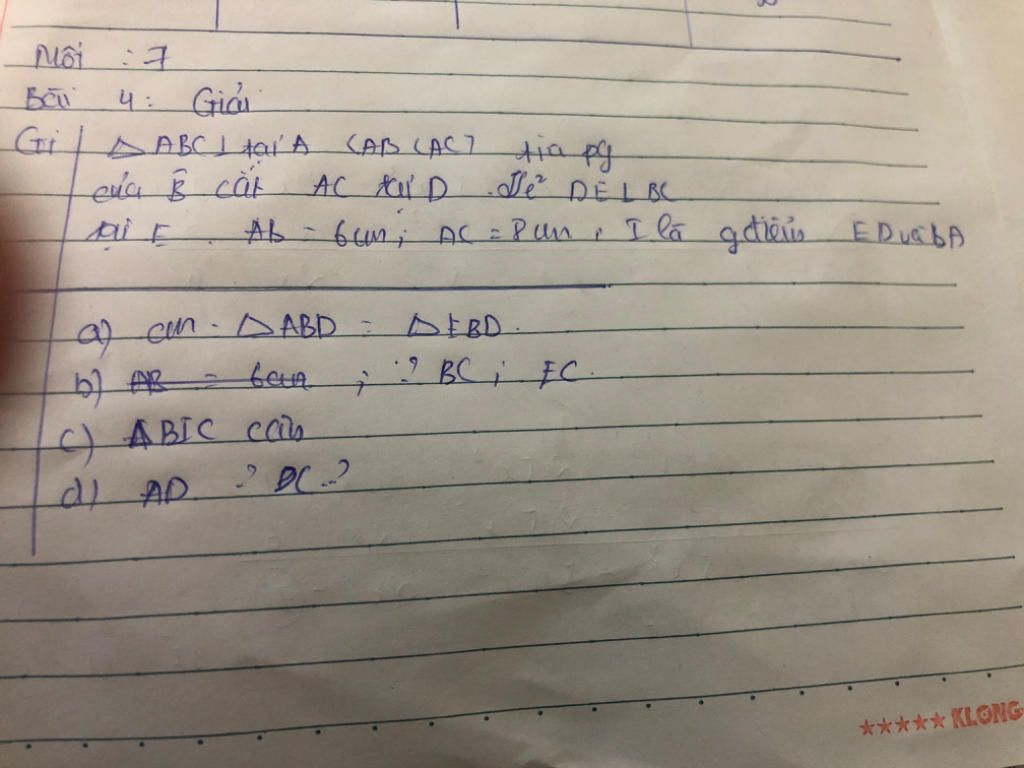 Môi : 7
Bài 4 : Giải
Gi ΔABC⊥ tại A (AB<AC) tia pg
của B̂ cắt AC tại D . Vẽ DE⊥BC
tại E . Ab = 6cm ; AC = 8cm , I là gđiểm ED và bA
a) cm . ΔABD = ΔEBD .
b) AB = 6cm ; ? BC ; EC .
c) ΔBIC cân
d) AD ? DC ?
★★★★★ KLONG